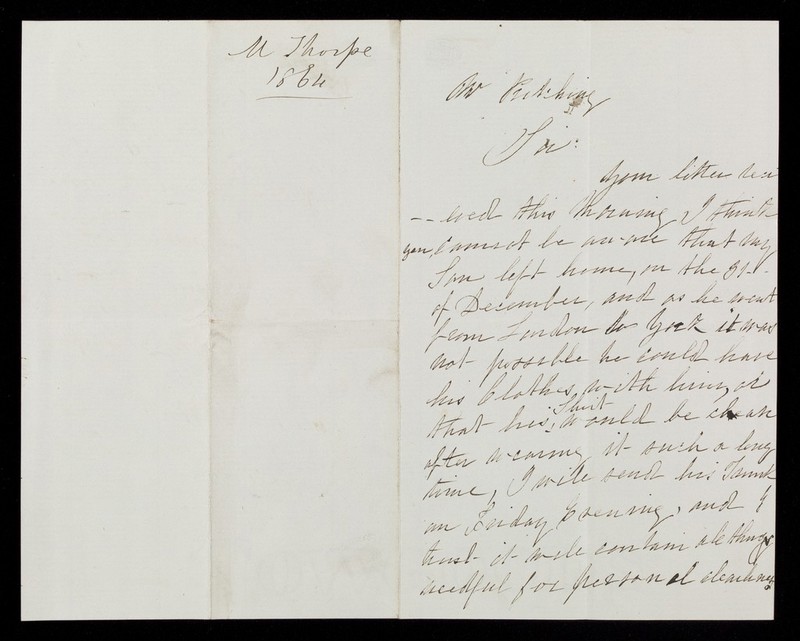 M Thorpe
1864
Dr Kitching
Sir:
Your letter recei
--eved this Morning I think
you, cannot be aware that my
Son left home, on the 31st.
of December, and as he went
from London to York it was
not possible he could have
his Clothes, with him, or
that his Shirt would be clean
after wearing it such a long
time, I will send his Trunk
on Friday Evening, and I
trust it will contain all things
needful for personal cleanliness